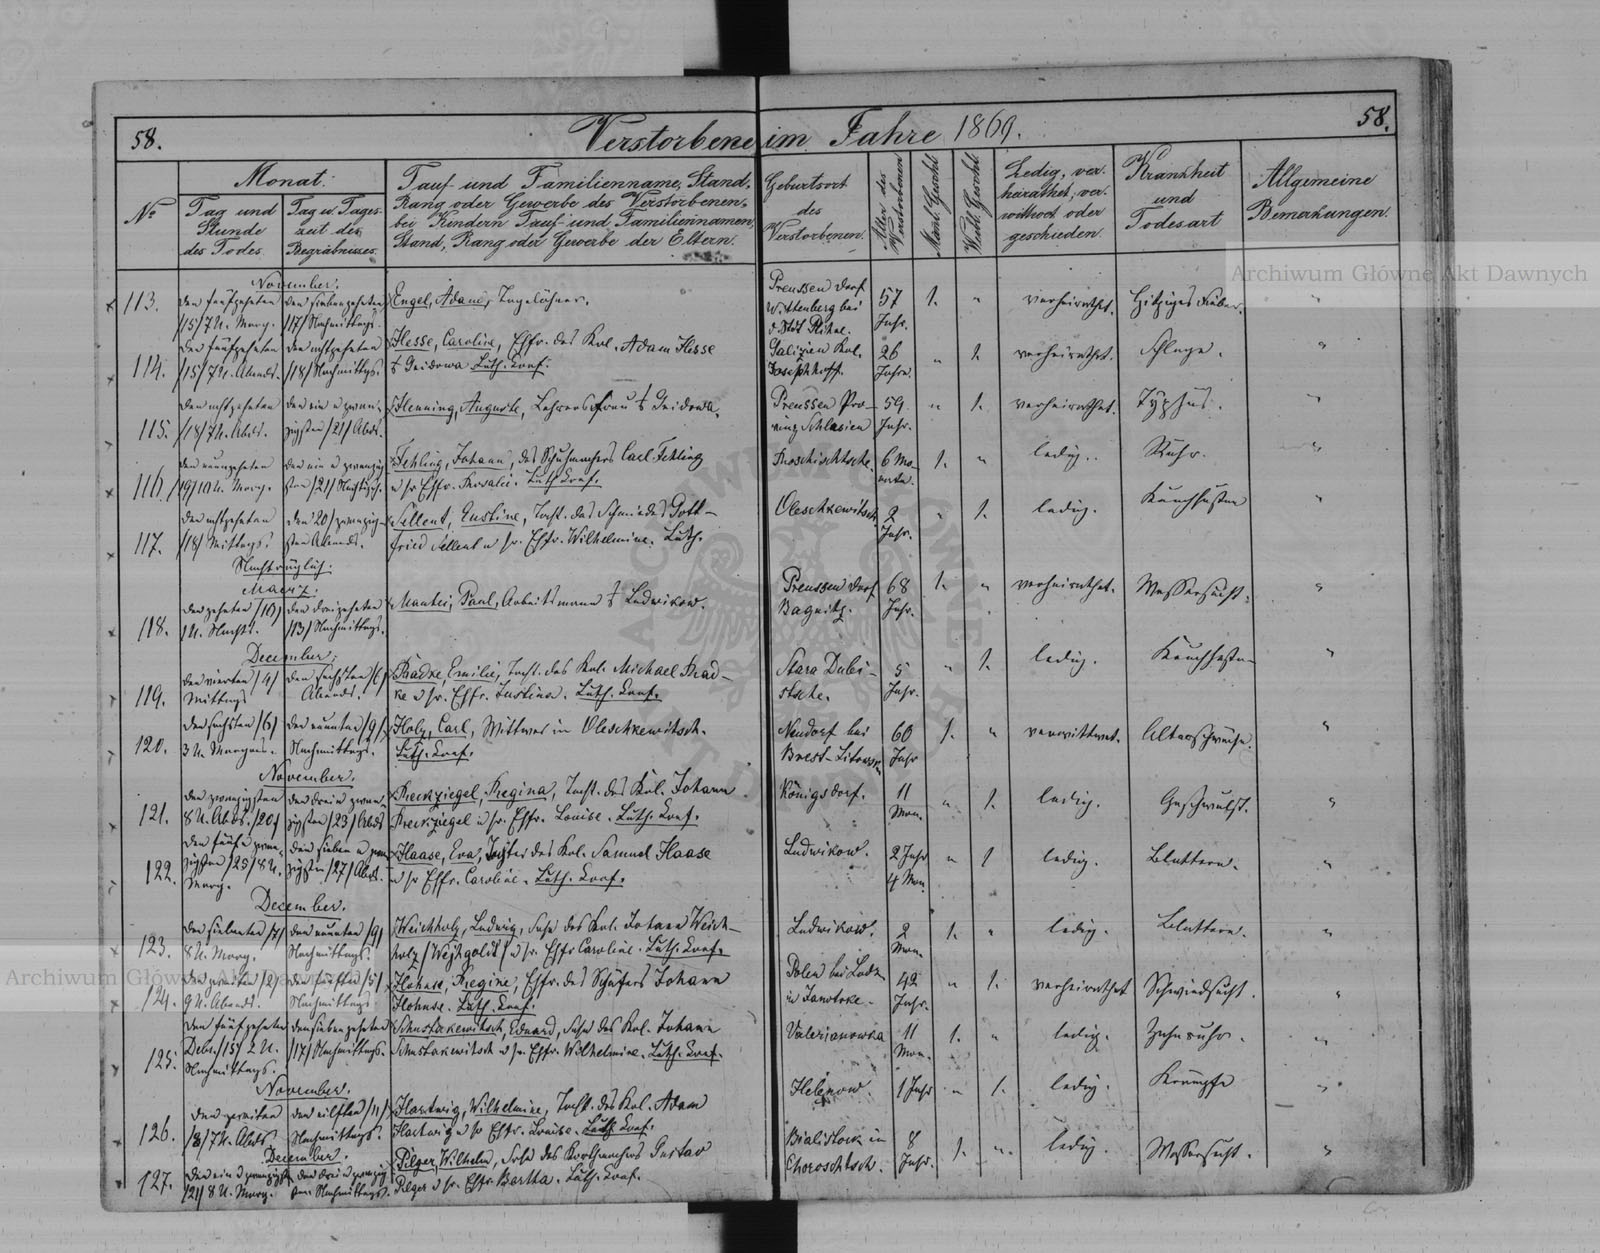 58.
Verstorbene im Jahre 1869.
58.
No
Monat.
Tag und Stunde des Todes.
Tag u. Tageszeit des Begräbnisses.
Tauf- und Familienname, Stand,
Rang oder Gewerbe des Verstorbenen,
bei Kindern Tauf- und Familiennamen,
Stand, Rang oder Gewerbe der Eltern.
Geburtsort
des
Verstorbenen.
Alter des Verstorbenen
Männl. Geschl.
Weibl. Geschl.
Ledig, ver-
heirathet, ver-
wittwet oder
geschieden.
Krankheit
und
Todesart
Allgemeine
Bemerkungen.
November.
113.
den fünfzehnten
/15/ 7 U. Morg.
den siebenzehnten
/17/ Nachmittags.
Engel, Adam, Tagelöhner.
Preussen Dorf
Wittenberg bei
57
Jahr.
1.
"
verheirathet.
Hitziges Fieber.
"
114.
den fünfzehnten
/15/ 7 U. Abends.
den achtzehnten
/18/ Nachmittags.
Hesse, Caroline, Ehfr. des Kol. Adam Hesse
Luth. Conf.
Galizien Kol.
Josephhoff.
26
Jahre.
"
1.
verheirathet.
Schlage.
"
115.
den achtzehnten
/18/ 7 U. Abds.
den ein u zwan-
zigsten /21/ Abds.
Henning, Auguste, Lehrersfrau
Preussen Pro-
vinz Schlesien
59.
Jahr.
"
1.
verheirathet.
Typhus.
"
116.
den neunzehnten
/19/ 10 U. Morg.
den ein u zwanzig-
sten /21/
Fehling, Johann, des Schuhmachers Carl Fehling
u sr. Ehfr. Rosalie. Luth. Conf.
6 Mo-
nate.
1.
"
ledig.
Ruhr.
"
117.
den achtzehnten
/18/ Mittags.
den 20/ zwanzig-
sten Abends.
Sellent, Justine, Tocht. des Schmiedes Gott-
fried Sellent u sr. Ehfr. Wilhelmine. Luth.
Oleschkewitsch
2
Jahr.
"
1.
ledig.
Keuchhusten
"
Nachträglich.
Maerz.
118.
den zehnten /10/
1 U. Nachts.
den dreizehnten
/13/ Nachmittags.
Mantei, Paul, Arbeitsmann z Ludwikow.
Preussen Dorf
Bagnitz.
68
Jahr.
1.
"
verheirathet.
Wassersucht.
"
December.
119.
den vierten /4/
Mittags
den sechsten /6/
Abends.
Radke, Emilie, Tocht. des Kol. Michael Rad-
ke u sr. Ehfr. Justine. Luth. Conf.
Stara Dubi-
5
Jahr.
"
1.
ledig.
Keuchhusten
"
120.
den sechsten /6/
3 U. Morgens.
den neunten /9/
Nachmittags.
Holz, Carl, Wittwer in Oleschkewitsch.
Luth. Conf.
Neudorf bei
Brest-Litowsk
60
Jahr
1.
"
verwittwet.
Altersschwäche.
"
November.
121.
den zwanzigsten
8 U. Abds. /20/
den drei u zwan-
zigsten /23/ Abds
Reckziegel, Regina, Tocht. des Kol. Johann
Reckziegel u sr. Ehfr. Louise. Luth. Conf.
Königsdorf.
11
Mon.
"
1.
ledig.
Geschwulst.
"
122.
den fünf u zwan-
zigsten /25/ 8 U.
Morg.
den sieben u zwan-
zigsten /27/ Abds.
Haase, Eva, Tochter des Kol. Samuel Haase
u sr Ehfr. Caroline. Luth. Conf.
Ludwikow.
2 Jahr
4 Mon.
"
1
ledig.
Blattern.
"
December.
123.
den siebenten /7/
8 U. Morg.
den neunten /9/
Nachmittags.
Weichholz, Ludwig, Sohn des Kol. Johann Weich-
holz /Wejhgolit/ u sr. Ehfr Caroline. Luth. Conf.
Ludwikow.
2
Mon.
1.
"
ledig.
Blattern.
"
124.
den zweiten /2/
9 U. Abends.
den fünften /5/
Nachmittags
Hohnse, Regine, Ehfr. des Schäfers Johann
Hohnse. Luth. Conf.
Polen bei Lodz
42
Jahr.
"
1.
verheirathet
Schwindsucht.
"
125.
den fünfzehnten
Debr. /15/ 2 U.
Nachmittags.
den siebenzehnten
/17/ Nachmittags.
Schustakewitsch, Eduard, Sohn des Kol. Johann
Schustakewitsch u sr. Ehfr. Wilhelmine. Luth. Conf.
Valerianowka
11
Mon.
1.
"
ledig.
Zahnruhr.
"
November.
126.
den zweiten
/8/ 7 U. Abds
den eilften /11/
Nachmittags.
Hartwig, Wilhelmine, Tocht. des Kol. Adam
Hartwig u sr Ehfr. Louise. Luth. Conf.
Helenow.
1 Jahr
"
1.
ledig.
Krämpfe
"
December.
127.
den ein u zwanzigst
/21/ 8 U. Morg.
den drei u zwanzig
sten Nachmittags.
Pelzer, Wilhelm, Sohn des Gustav
Pelzer u sr. Ehfr. Bertha. Luth. Conf.
Bialistock in
Choroschtsch.
8
Jahr.
1.
"
ledig.
Wassersucht.
"
Archiwum Główne Akt Dawnych
Archiwum Główne Akt Dawnych